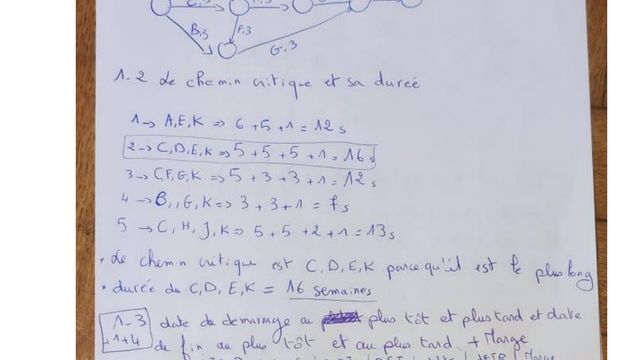 B,3
F,3
G,3
1-2 Le chemin critique et sa durée
1 → A,E,K => 6 + 5 + 1 = 12 s
2 → C,D,E,K => 5 + 5 + 5 + 1 = 16 s
3 → C,F,G,K => 5 + 3 + 3 + 1 = 12 s
4 → B,,G,K => 3 + 3 + 1 = 7 s
5 → C, H, J, K => 5 + 5 + 2 + 1 = 13 s
* Le chemin critique est C, D, E, K parce qu'il est le plus long
* durée du C, D, E, K = 16 semaines
1-3 date du demarrage au plus tôt et plus tard et date
+1+4 de fin au plus tôt et au plus tard. + Marge